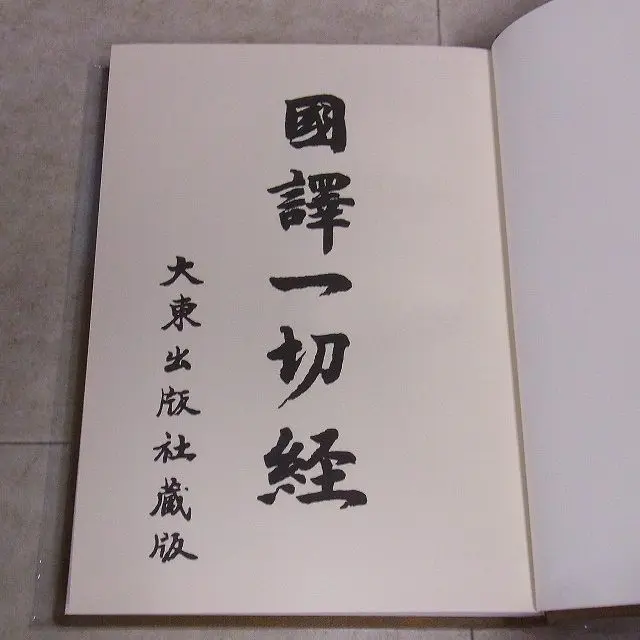 國譯一切経
大東出版社蔵版